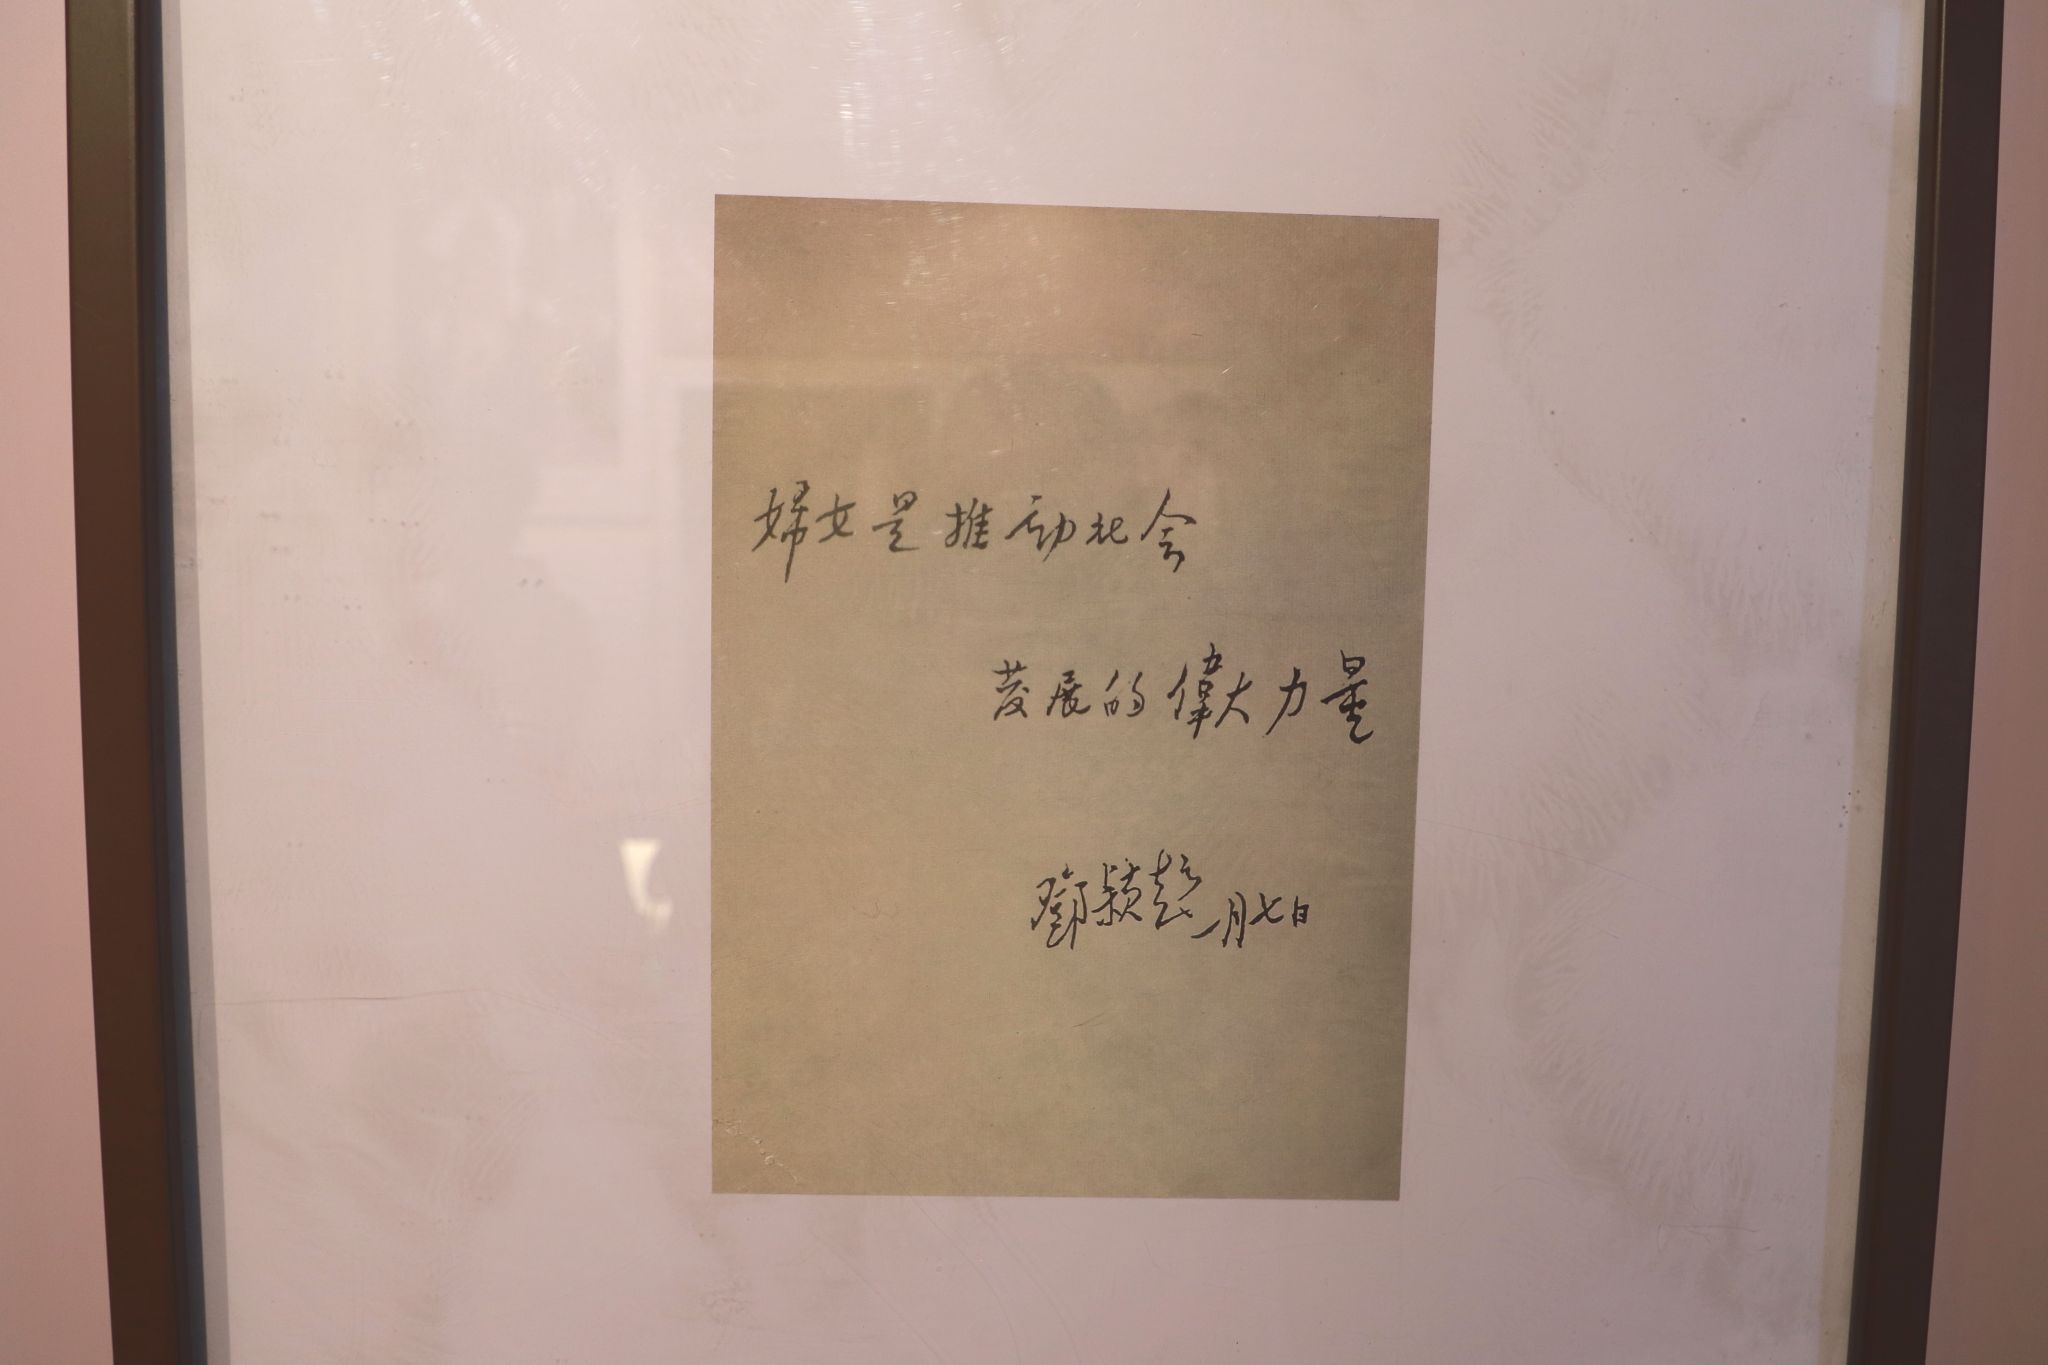 婦女是推动社会
发展的偉大力量
鄧颖超 一月七日